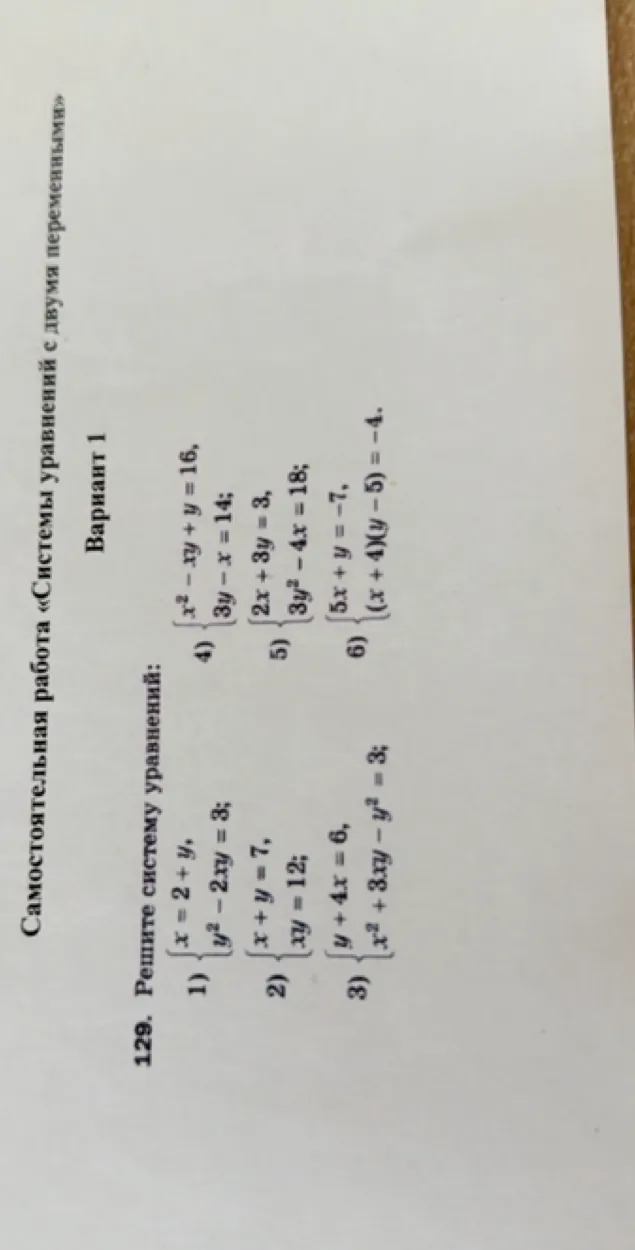 Самостоятельная работа «Системы уравнений с двумя переменными»
Вариант 1
129. Решите систему уравнений:
1) { x = 2 + y,
y² − 2xy = 3;
2) { x + y = 7,
xy = 12;
3) { y + 4x = 6,
x² + 3xy − y² = 3;
4) { x² − xy + y = 16,
3y − x = 14;
5) { 2x + 3y = 3,
3y² − 4x = 18;
6) { 5x + y = −7,
(x + 4)(y − 5) = −4.